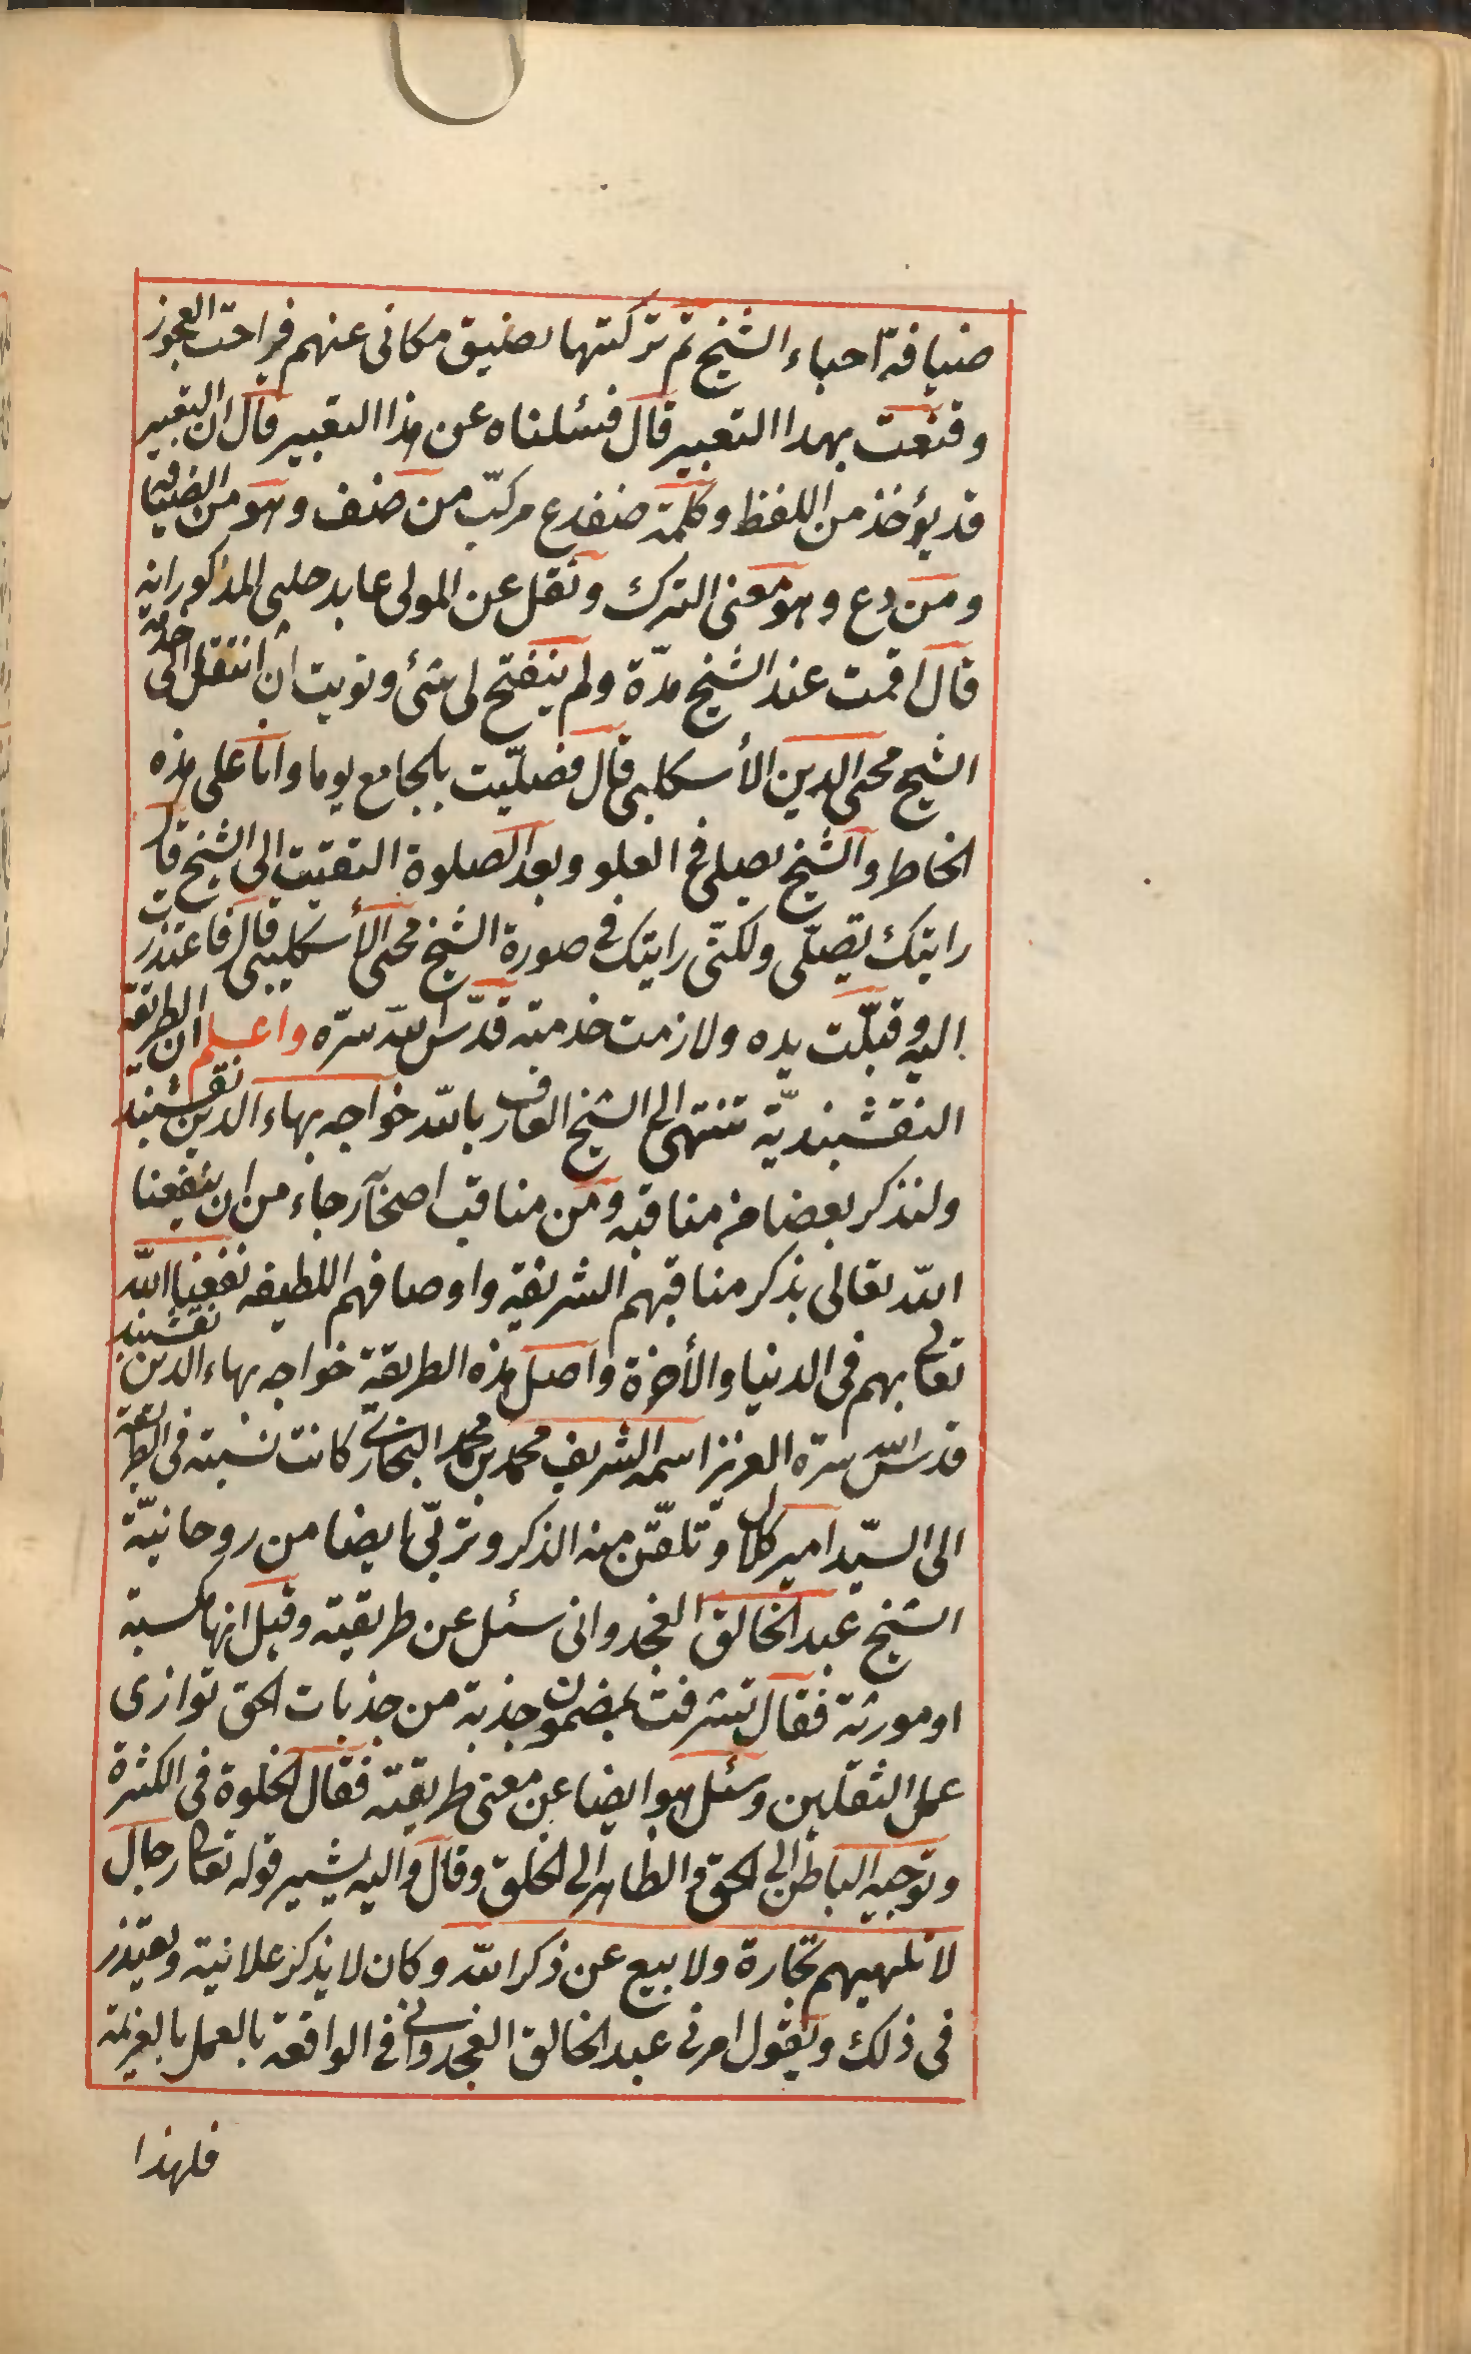 ضيافة احباء الشيخ ثم تركتها لضيق مكانى عنهم فراحت العجوز
وقنعت بهذا التعبير قال فسئلناه عن هذا التعبير قال ان التعبير
قد يؤخذ من اللفظ وكلمة ضفدع مركّب من ضف وهو من الضيافة
ومن دع وهو معنى الترك ونقل عن المولى عابد جلبى المذكور انه
قال اقمت عند الشيخ مدّة ولم ينفتح لى شئ ونويت ان انتقل الى خدمة
الشيخ محى الدين الأسكليبى قال فصلّيت بالجامع يوما وانا على هذه
الخاطر والشيخ يصلى فى العلو وبعد الصلوة التقيت الى الشيخ قال
رايتك تصلّى ولكنّى رايتك فى صورة الشيخ محى الأسكليبى قال فاعتذرت
اليه وقبّلت يده ولازمت خدمته قدّس الله سرّه واعلم ان الطريقة
النقشبنديّة تنتهى الى الشيخ العارف بالله خواجه بهاء الدين نقشبند
ولنذكر بعضا من مناقبه ومن مناقب اصحابه رجاء من ان ينفعنا
الله تعالى بذكر مناقبهم الشريفة واوصافهم اللطيفه نفعنا الله
تعالى بهم فى الدنيا والأخرة واصل هذه الطريقة خواجه بهاء الدين نقشبند
قدس الله سرّه العزيز اسمه الشريف محمد بن محمد البخارى كانت نسبته فى الطريقة
الى السيّد امير كلال وتلقّن منه الذكر وتربّى ايضا من روحانيّة
الشيخ عبد الخالق الغجدوانى سئل عن طريقته وقيل انها مكسبة
او مورثة فقال تشرفت بمضمون جذبة من جذبات الحق توازى
عمل الثقلين وسئل هو ايضا عن معنى طريقته فقال الخلوة فى الكثرة
وتوجيه الباطن الى الحق والظاهر الى الخلق وقال واليه يشير قوله تعالى رجال
لا تلهيهم تجارة ولا بيع عن ذكر الله وكان لا يذكر علانية ويعتذر
فى ذلك ويقول امرنى عبد الخالق الغجدوانى فى الواقعة بالعمل بالعزيمة
فلهذا